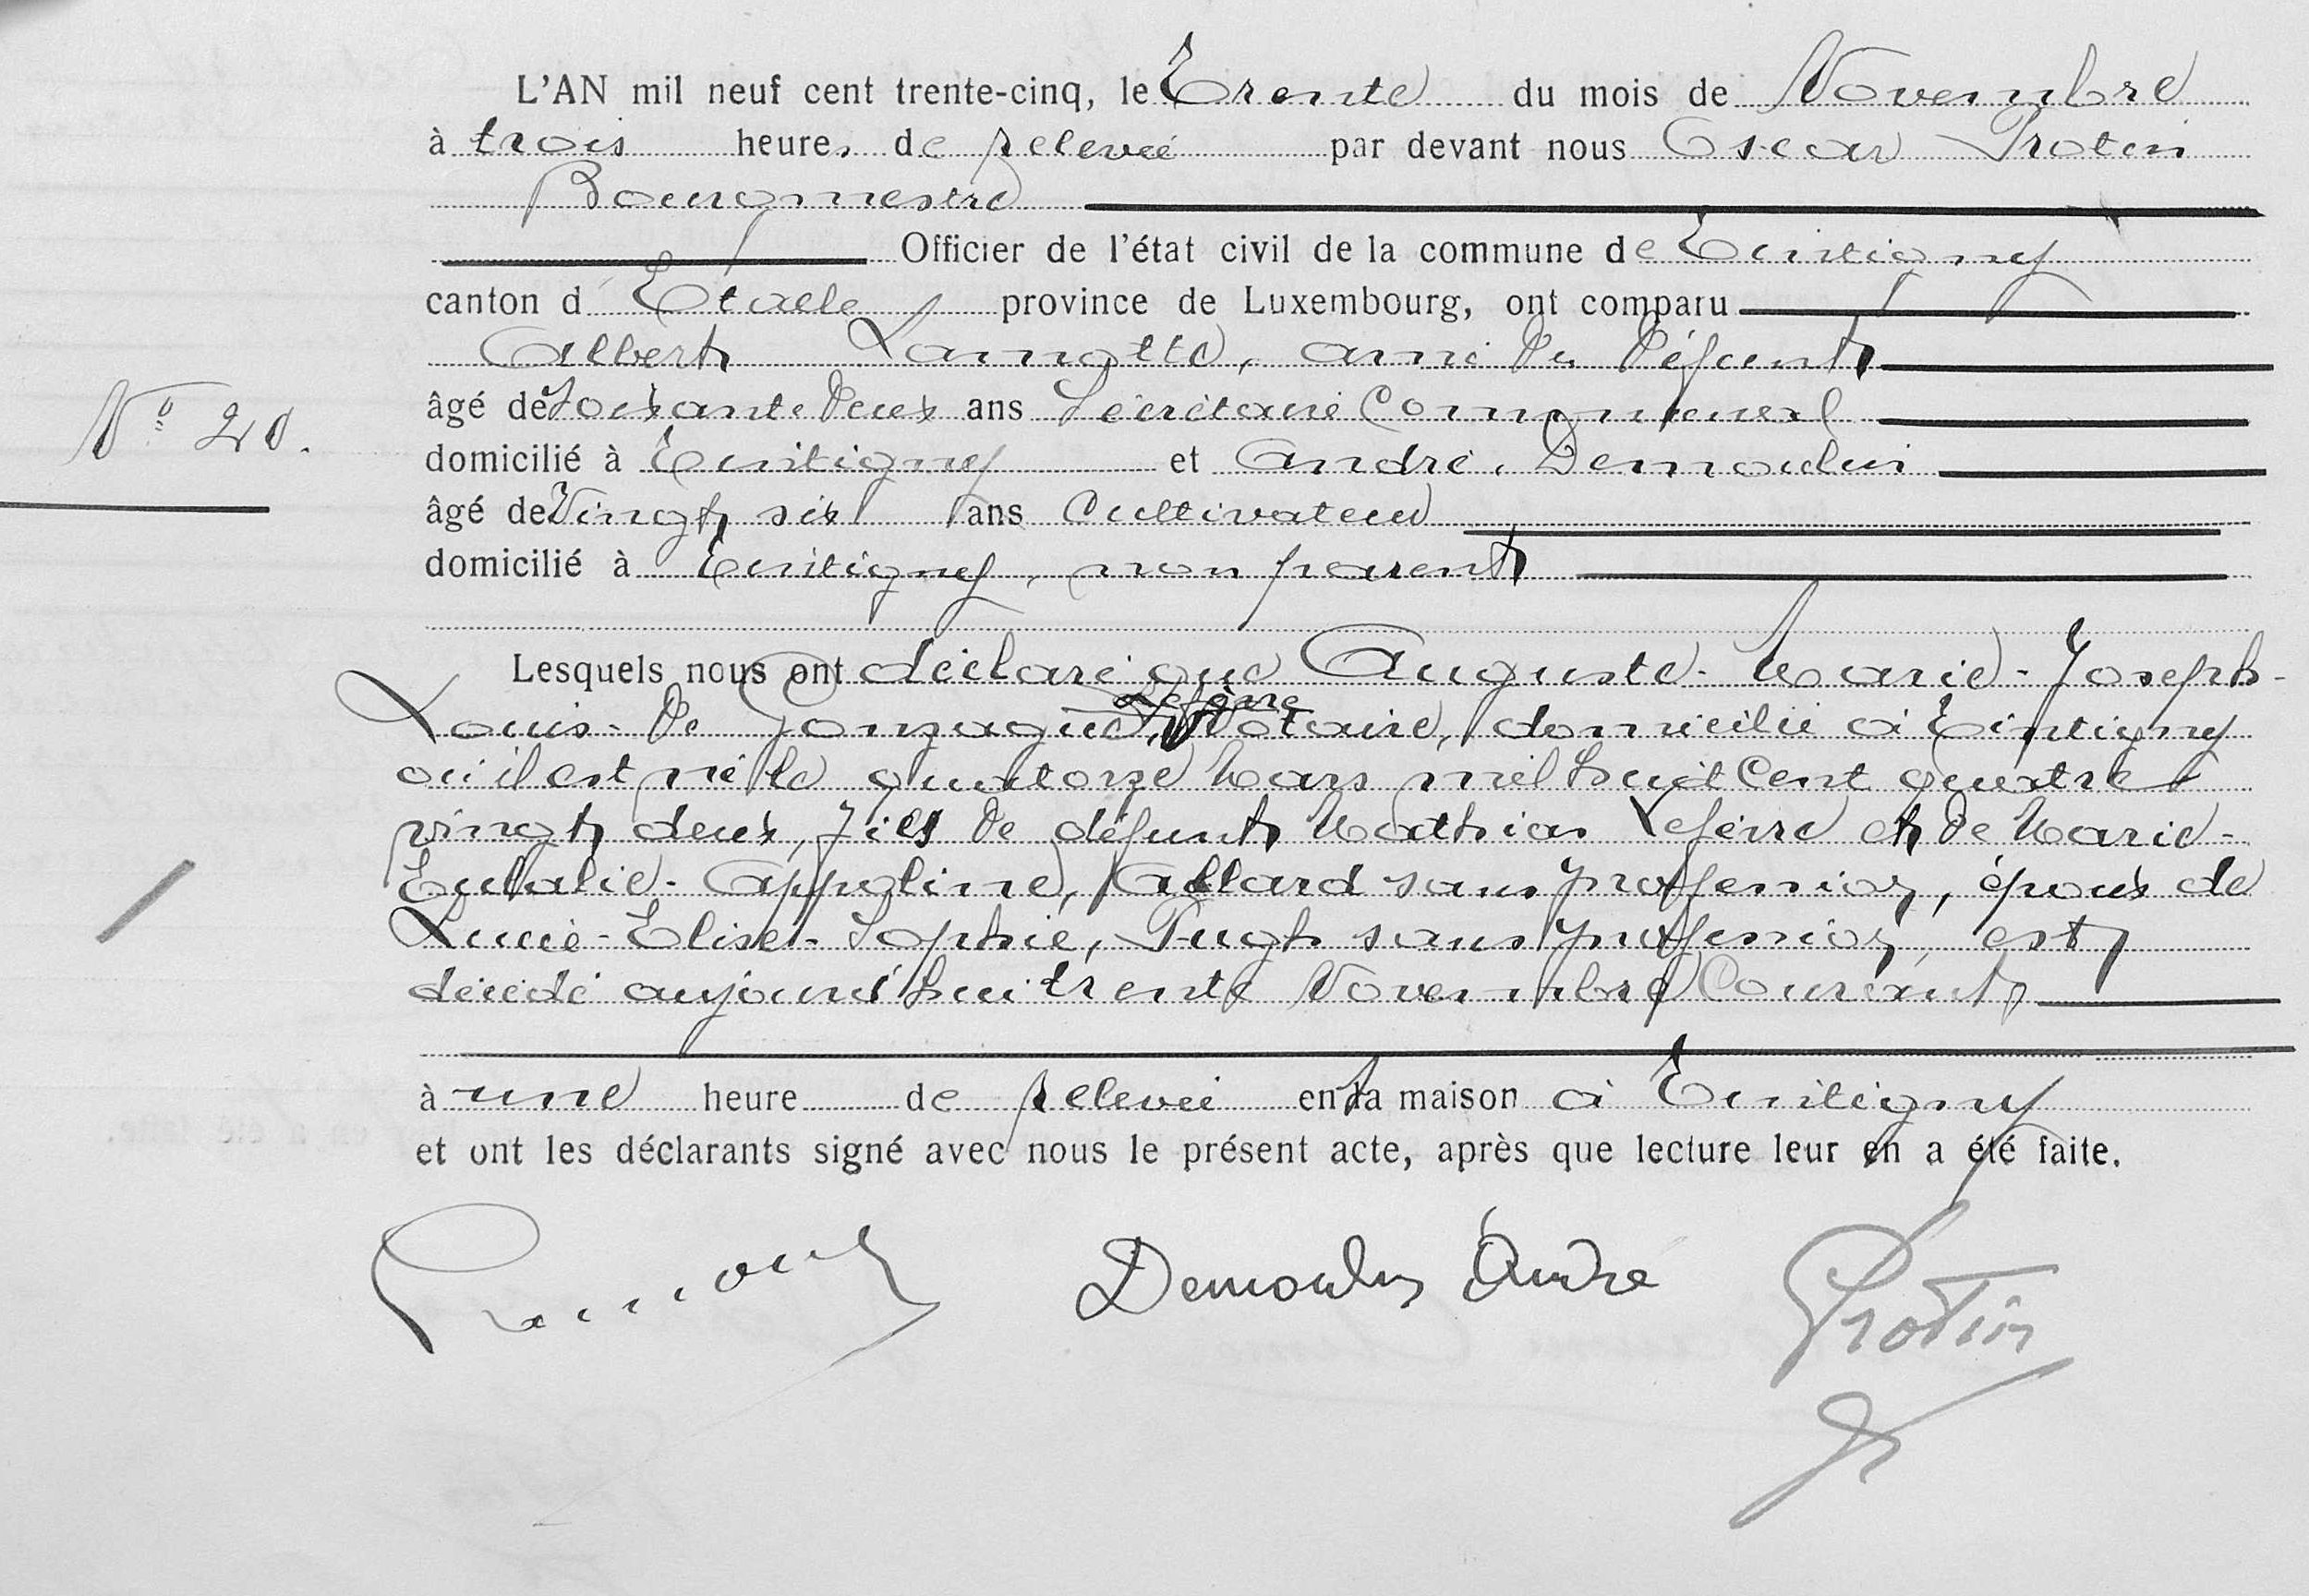 L'AN mil neuf cent trente-cinq, le Trente du mois de Novembre
à trois heures de relevée par devant nous Oscar Protin
Bourgmestre
Officier de l'état civil de la commune de Tintigny
canton d'Etalle province de Luxembourg, ont comparu
Albert Lamotte, ami du défunt
N° 20.
âgé de Soixante deux ans Secrétaire Communal
domicilié à Tintigny et André, Demoulin
âgé de Vingt six ans Cultivateur
domicilié à Tintigny, non parent
Lesquels nous ont déclaré que Auguste-Marie-Joseph-
Lefèvre
Louis-de Gonzague, Notaire, domicilié à Tintigny
où il est né le quatorze Mars mil huit Cent quatre
vingt deux, fils de défunt Mathias Lefèvre et de Marie-
Eulalie-Appoline, Allard sans profession, époux de
Lucie-Elise-Sophie, Pugh sans profession, est
décédé aujourd'hui trente Novembre Courant
à une heure de relevée en sa maison à Tintigny
et ont les déclarants signé avec nous le présent acte, après que lecture leur en a été faite.
Demoulin André Protin